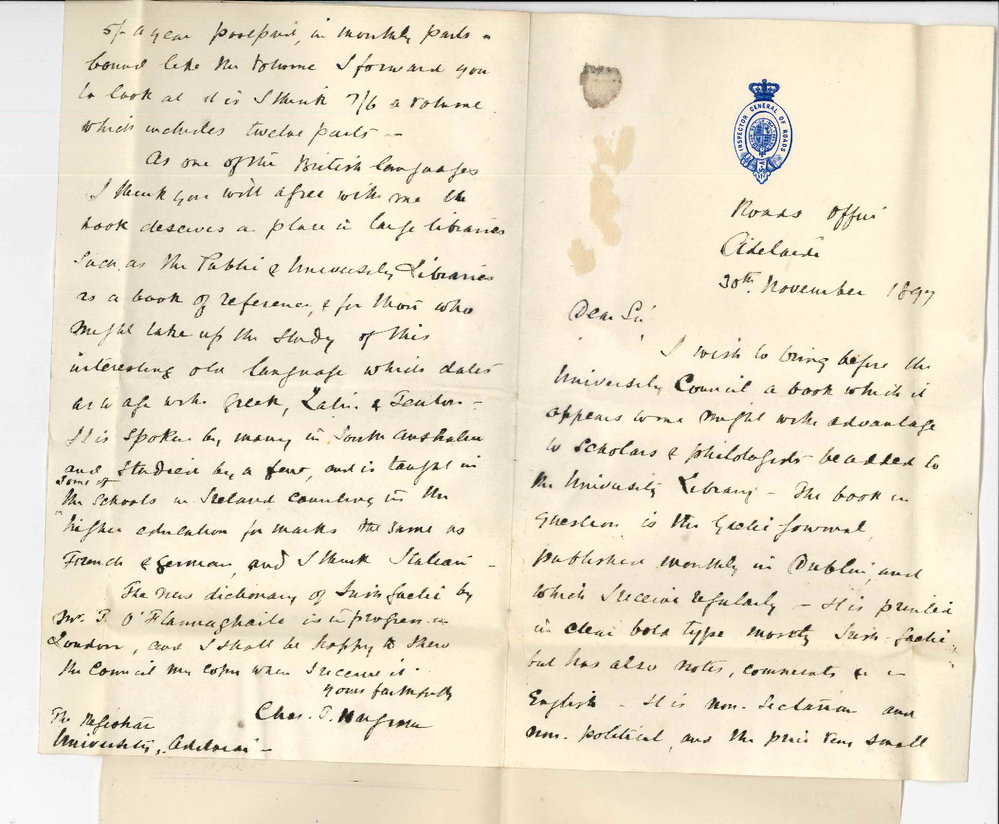 INSPECTOR GENERAL OF ROADS
Roads Office
Adelaide
30th November 1897
Dear Sir
I wish to bring before the
University Council a book which it
appears to me might with advantage
to scholars & philologists be added to
the University Library – The book in
question is the Gaelic Journal,
published monthly in Dublin, and
which I receive regularly – It is printed
in clear bold type mostly Irish-Gaelic
but has also notes, comments &c in
English – It is non-sectarian and
non-political, and the price very small
5/- a year postpaid, in monthly parts or
bound like the volume I forward you
to look at it is I think 7/6 a volume
which includes twelve parts –
As one of the British languages
I think you will agree with me the
book deserves a place in large libraries
such as the Public & University Libraries
as a book of reference, & for those who
might take up the study of this
interesting old language which dates
as to age with Greek, Latin & Teuton –
It is spoken by many in South Australia
and studied by a few, and is taught in
some of
the schools in Ireland counting in the
higher education for marks the same as
French & German, and I think Italian –
The new dictionary of Irish Gaelic by
Mr. T. O'Flannaghaile is in progress in
London, and I shall be happy to shew
the Council my copy when I receive it
Yours faithfully
Chas. T. Hargrave
The Registrar
University, Adelaide –